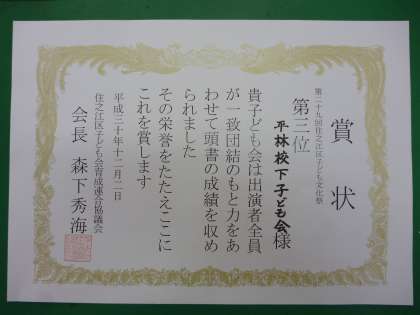 賞状
第二十九回住之江区子ども文化祭
第三位
平林校下子ども会様
貴子ども会は出演者全員
が一致団結のもと力をあ
わせて頭書の成績を収め
られました
その栄誉をたたえここに
これを賞します
平成三十年十二月二日
住之江区子ども会育成連合協議会
会長 森下秀海